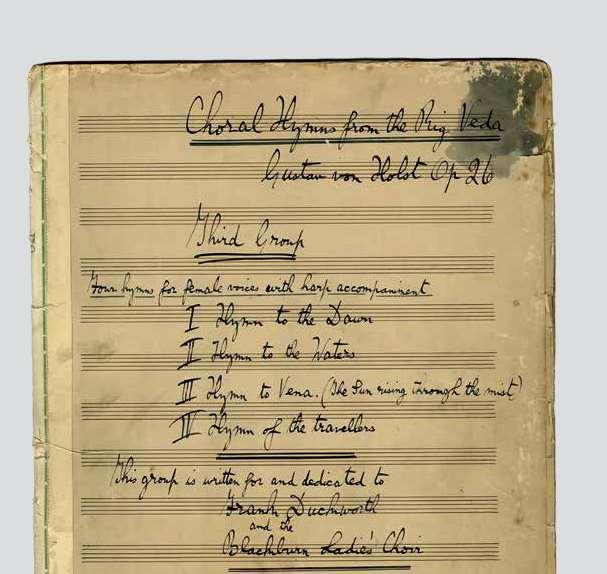 Choral Hymns from the Rig Veda
Gustav von Holst Op 26
Third Group
Four hymns for female voices with harp accompaniment
I Hymn to the Dawn
II Hymn to the Waters
III Hymn to Vena. (The Sun rising through the mist)
IV Hymn of the travellers
This group is written for and dedicated to
Frank Duckworth
and the
Blackburn Ladie's Choir